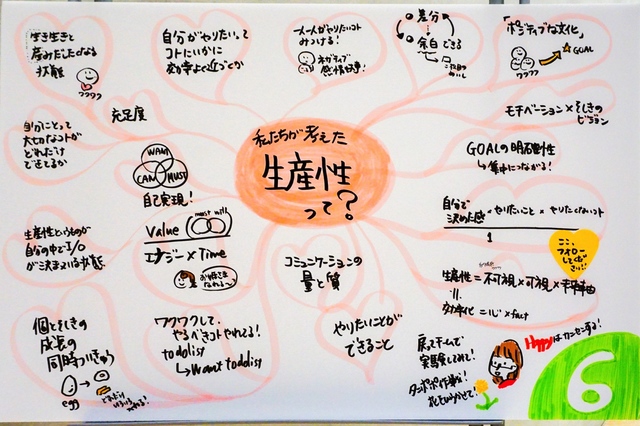 生き生きと
産みだしたくなる
状態
ワクワク
自分がやりたいって
コトにいかに
効率よく近づくか
一人一人がやりたいコト
みつける!
ネガティブ
感情も大事!
差分
余白できる
「ポジティブな文化」
GOAL
ワクワク
自分にとって
大切なコトが
どれだけ
できてるか
充足度
モチベーション×そしきの
ビジョン
私たちが考えた
生産性
って?
GOALの明確性
↳ 集中につながる!
WANT
CAN
MUST
自己実現!
自分で
決めた感 × やりたいこと × やりたくないコト
1
生産性というものが
自分の中で I/O
が決まっている状態
Value
must
will
エナジー × Time
お姫さま
なれる〜
コミュニケーションの
量と質
ここ、
フォロー
してくだ
さい!!
生産性=不可視×可視×
効率化=心×fact
個とそしきの
成長の
同時ついきゅう
egg
ワクワクして、
やるべきコトやれてる!
todolist
↳ Want todolist
やりたいことが
できること
戻ってチームで
実験してみて!
タンポポ作戦!
花をさかせて!
Happyはカンセンする!
6